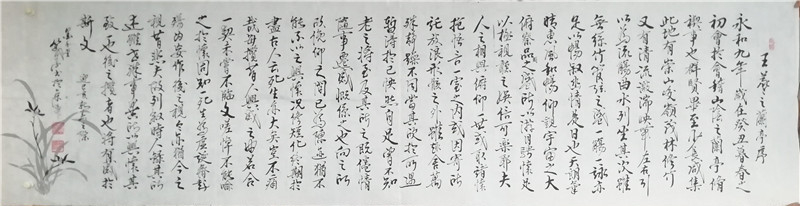 王羲之蘭亭序
永和九年歲在癸丑暮春之
初會於會稽山陰之蘭亭脩
禊事也群賢畢至少長咸集
此地有崇山峻嶺茂林修竹
又有清流激湍映帶左右引
以為流觴曲水列坐其次雖
無絲竹管弦之盛一觴一詠亦
足以暢敘幽情是日也天朗氣
晴惠風和暢仰觀宇宙之大
俯察品類之盛所以遊目騁懷足
以極視聽之娛信可樂也夫
人之相與俯仰一世或取諸懷
抱悟言一室之內或因寄所
託放浪形骸之外雖趣舍萬
殊靜躁不同當其欣於所遇
暫得於己快然自足不知
老之將至及其所之既倦情
隨事遷感慨係之矣向之所
欣俛仰之間已為陳迹猶不
能不以之興懷況修短隨化終期於
盡古人云死生亦大矣豈不痛
哉每攬昔人興感之由若合
一契未嘗不臨文嗟悼不能喻
之於懷固知死生為虛誕齊彭
殤為妄作後之視今亦猶今之
視昔悲夫故列敘時人錄其所
述雖世殊事異所以興懷其
致一也後之攬者亦將有感於
斯文